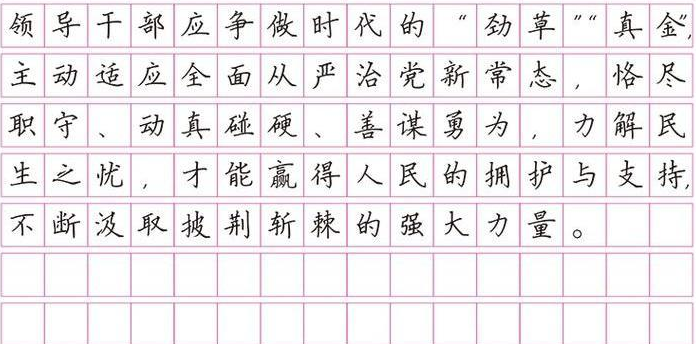 领导干部应争做时代的“劲草”“真金”,
主动适应全面从严治党新常态，恪尽
职守、动真碰硬、善谋勇为，力解民
生之忧，才能赢得人民的拥护与支持,
不断汲取披荆斩棘的强大力量。